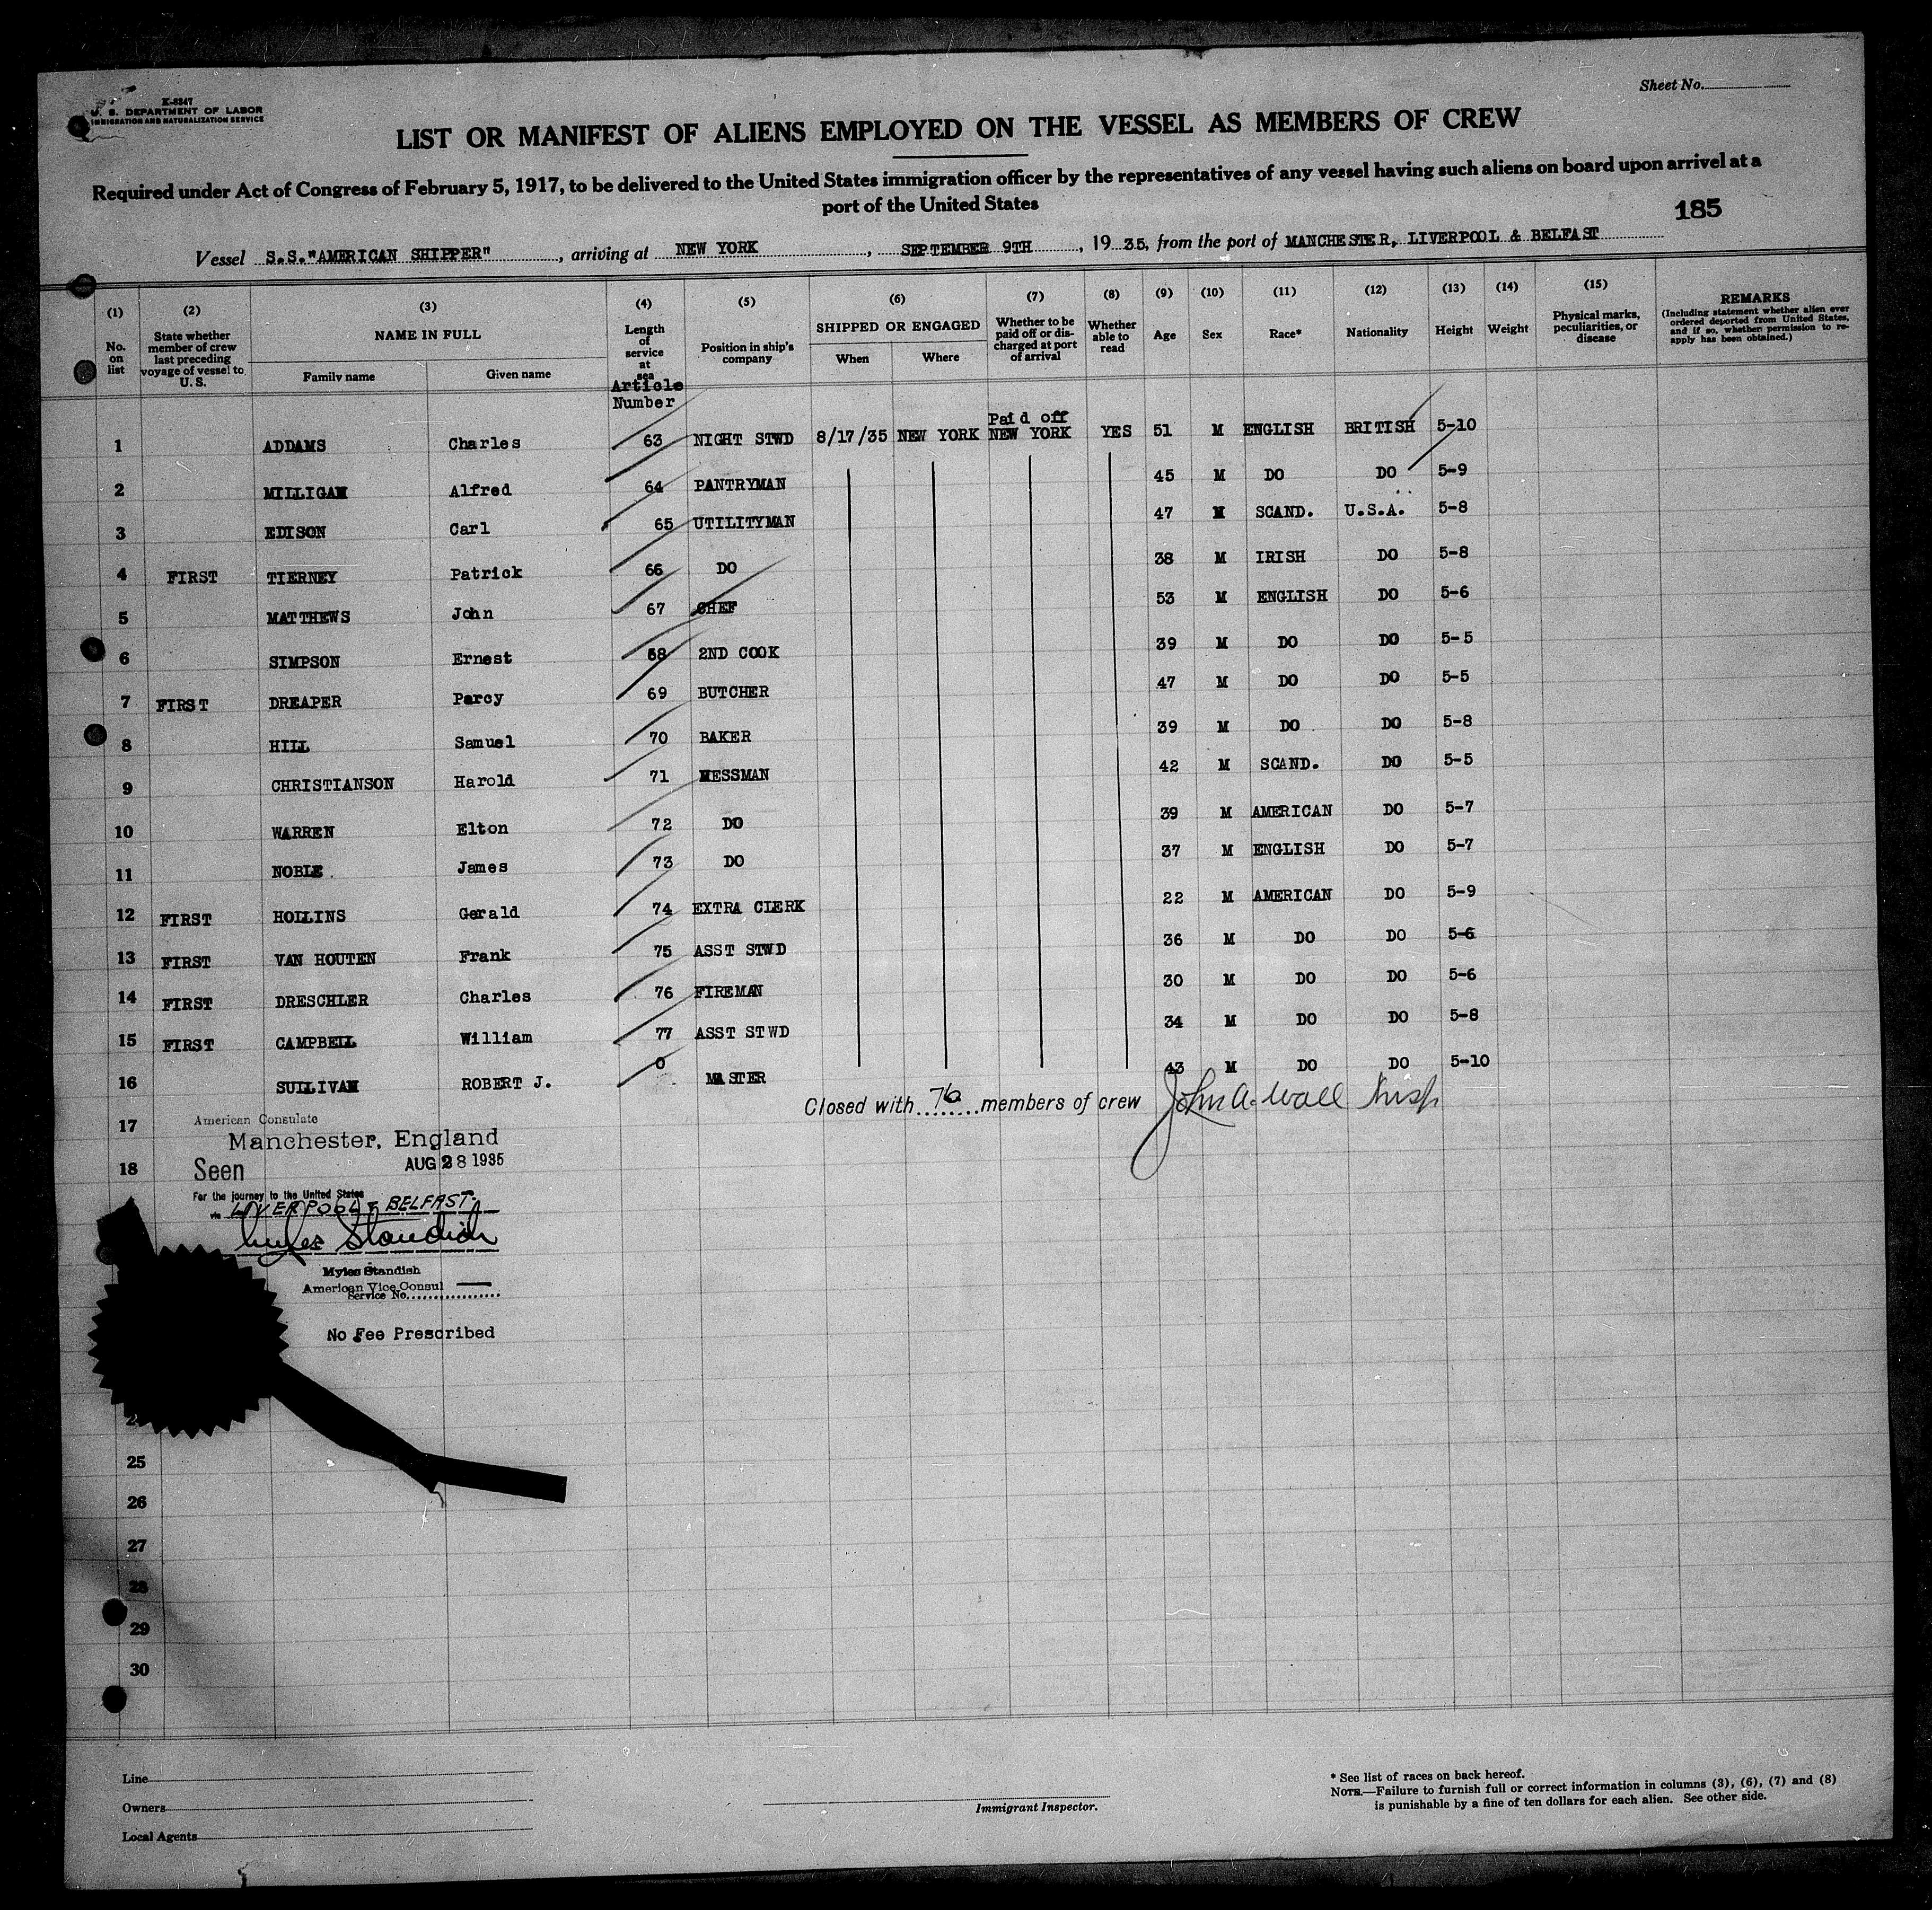 Sheet No.
K-8347
U. S. DEPARTMENT OF LABOR
IMMIGRATION AND NATURALIZATION SERVICE
LIST OR MANIFEST OF ALIENS EMPLOYED ON THE VESSEL AS MEMBERS OF CREW
Required under Act of Congress of February 5, 1917, to be delivered to the United States immigration officer by the representatives of any vessel having such aliens on board upon arrival at a
port of the United States
185
Vessel S.S."AMERICAN SHIPPER", arriving at NEW YORK, SEPTEMBER 9TH, 1935, from the port of MANCHESTER, LIVERPOOL & BELFAST
(1) (2) (3) (4) (5) (6) (7) (8) (9) (10) (11) (12) (13) (14) (15)
No. on list
State whether member of crew last preceding voyage of vessel to U. S.
NAME IN FULL
Family name Given name
Length of service at sea
Article Number
Position in ship's company
SHIPPED OR ENGAGED
When Where
Whether to be paid off or discharged at port of arrival
Whether able to read
Age Sex Race* Nationality Height Weight
Physical marks, peculiarities, or disease
REMARKS
(Including statement whether alien ever ordered deported from United States, and if so, whether permission to re-apply has been obtained.)
1 ADDAMS Charles 63 NIGHT STWD 8/17/35 NEW YORK Paid off NEW YORK YES 51 M ENGLISH BRITISH 5-10
2 MILLIGAN Alfred 64 PANTRYMAN 45 M DO DO 5-9
3 EDISON Carl 65 UTILITYMAN 47 M SCAND. U.S.A. 5-8
4 FIRST TIERNEY Patrick 66 DO 38 M IRISH DO 5-8
5 MATTHEWS John 67 CHEF 53 M ENGLISH DO 5-6
6 SIMPSON Ernest 68 2ND COOK 39 M DO DO 5-5
7 FIRST DREAPER Percy 69 BUTCHER 47 M DO DO 5-5
8 HILL Samuel 70 BAKER 39 M DO DO 5-8
9 CHRISTIANSON Harold 71 MESSMAN 42 M SCAND. DO 5-5
10 WARREN Elton 72 DO 39 M AMERICAN DO 5-7
11 NOBLE James 73 DO 37 M ENGLISH DO 5-7
12 FIRST HOLLINS Gerald 74 EXTRA CLERK 22 M AMERICAN DO 5-9
13 FIRST VAN HOUTEN Frank 75 ASST STWD 36 M DO DO 5-6
14 FIRST DRESCHLER Charles 76 FIREMAN 30 M DO DO 5-6
15 FIRST CAMPBELL William 77 ASST STWD 34 M DO DO 5-8
16 SULLIVAN ROBERT J. 0 MASTER 43 M DO DO 5-10
Closed with 76 members of crew John A. Wall Insp.
17
American Consulate
Manchester, England
18
Seen AUG 28 1935
For the journey to the United States
via LIVERPOOL & BELFAST.
Myles Standish
Myles Standish
American Vice Consul
Service No.
No Fee Prescribed
25
26
27
28
29
30
Line
Owners
Local Agents
Immigrant Inspector.
* See list of races on back hereof.
NOTE.—Failure to furnish full or correct information in columns (3), (6), (7) and (8)
is punishable by a fine of ten dollars for each alien. See other side.